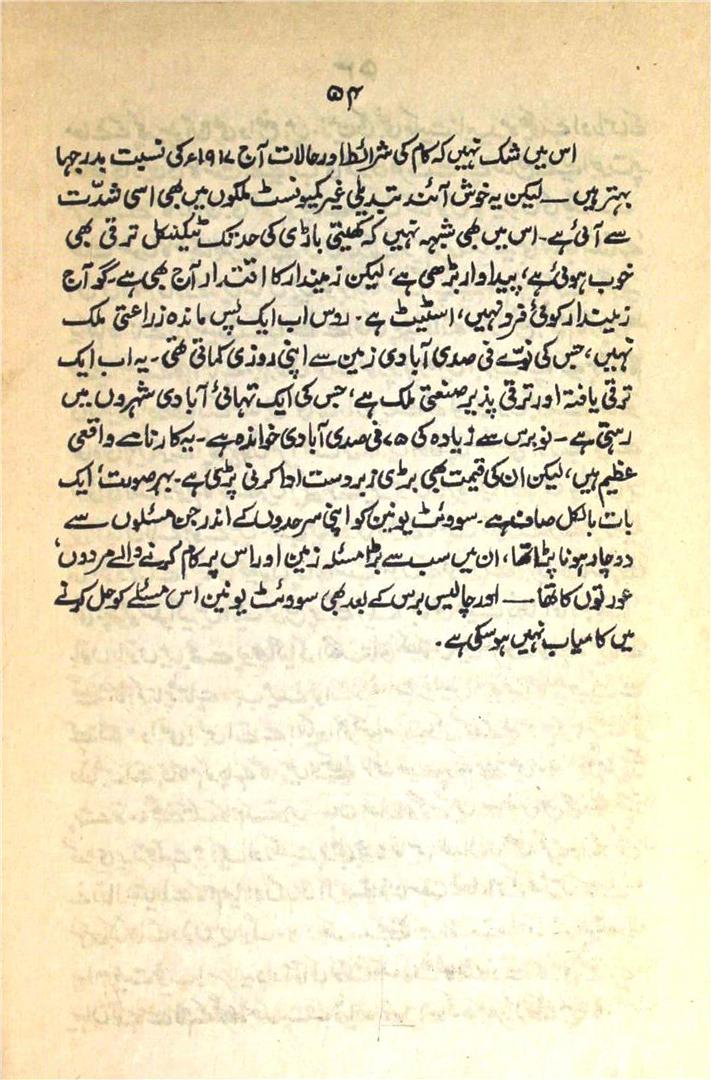 ۵۴
اس میں شک نہیں کہ کام کی شرائط اور حالات آج ۱۹۱۷ء کی نسبت بدرجہا
بہتر ہیں — لیکن یہ خوش آئند تبدیلی غیر کمیونسٹ ملکوں میں بھی اسی شدّت
سے آئی ہے۔ اس میں بھی شبہہ نہیں کہ کھیتی باڑی کی حد تک ٹیکنیکل ترقی بھی
خوب ہوئی ہے، پیداوار بڑھی ہے، لیکن زمیندار کا اقتدار آج بھی ہے۔ گو آج
زمیندار کوئی فرد نہیں، اسٹیٹ ہے۔ روس اب ایک پس ماندہ زراعتی ملک
نہیں، جس کی نوّے فی صدی آبادی زمین سے اپنی روزی کماتی تھی۔ یہ اب ایک
ترقی یافتہ اور ترقی پذیر صنعتی ملک ہے، جس کی ایک تہائی آبادی شہروں میں
رہتی ہے۔ نو برس سے زیادہ کی ۷۵ فی صدی آبادی خواندہ ہے۔ یہ کارنامے واقعی
عظیم ہیں، لیکن ان کی قیمت بھی بڑی زبردست ادا کرنی پڑی ہے۔ بہر صورت، ایک
بات بالکل صاف ہے۔ سوویٹ یونین کو اپنی سرحدوں کے اندر جن مسئلوں سے
دوچار ہونا پڑا تھا، ان میں سب سے بڑا مسئلہ زمین اور اس پر کام کرنے والے مردوں،
عورتوں کا تھا — اور چالیس برس کے بعد بھی سوویٹ یونین اس مسئلے کو حل کرنے
میں کامیاب نہیں ہو سکی ہے۔